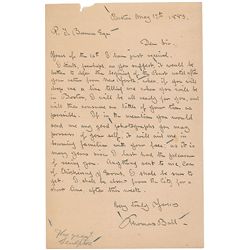 Boston May 12th, 1883.
P. T. Barnum Esqr
Dear Sir.
Yours of the 1st I have just received.
I think, perhaps, as you suggest it would be
better to defer the beginning of the bust until after
your return from New Bruns
drop me a line telling me when you will be
in Boston, I will be all ready for you, and
will then consume as little of your time as
possible. If in the meantime you would
send me any good photographs you may
possess of yourself, it will aid me in
becoming familiar with your face, as it is
many years now since I last had the pleasure
of seeing you. Anything sent to me, care
of Chickering & Sons, I shall be sure to
get. I shall be absent from the City, for a
short time, after this week.
Very truly Yours
Thomas Ball
The great
Sculptor